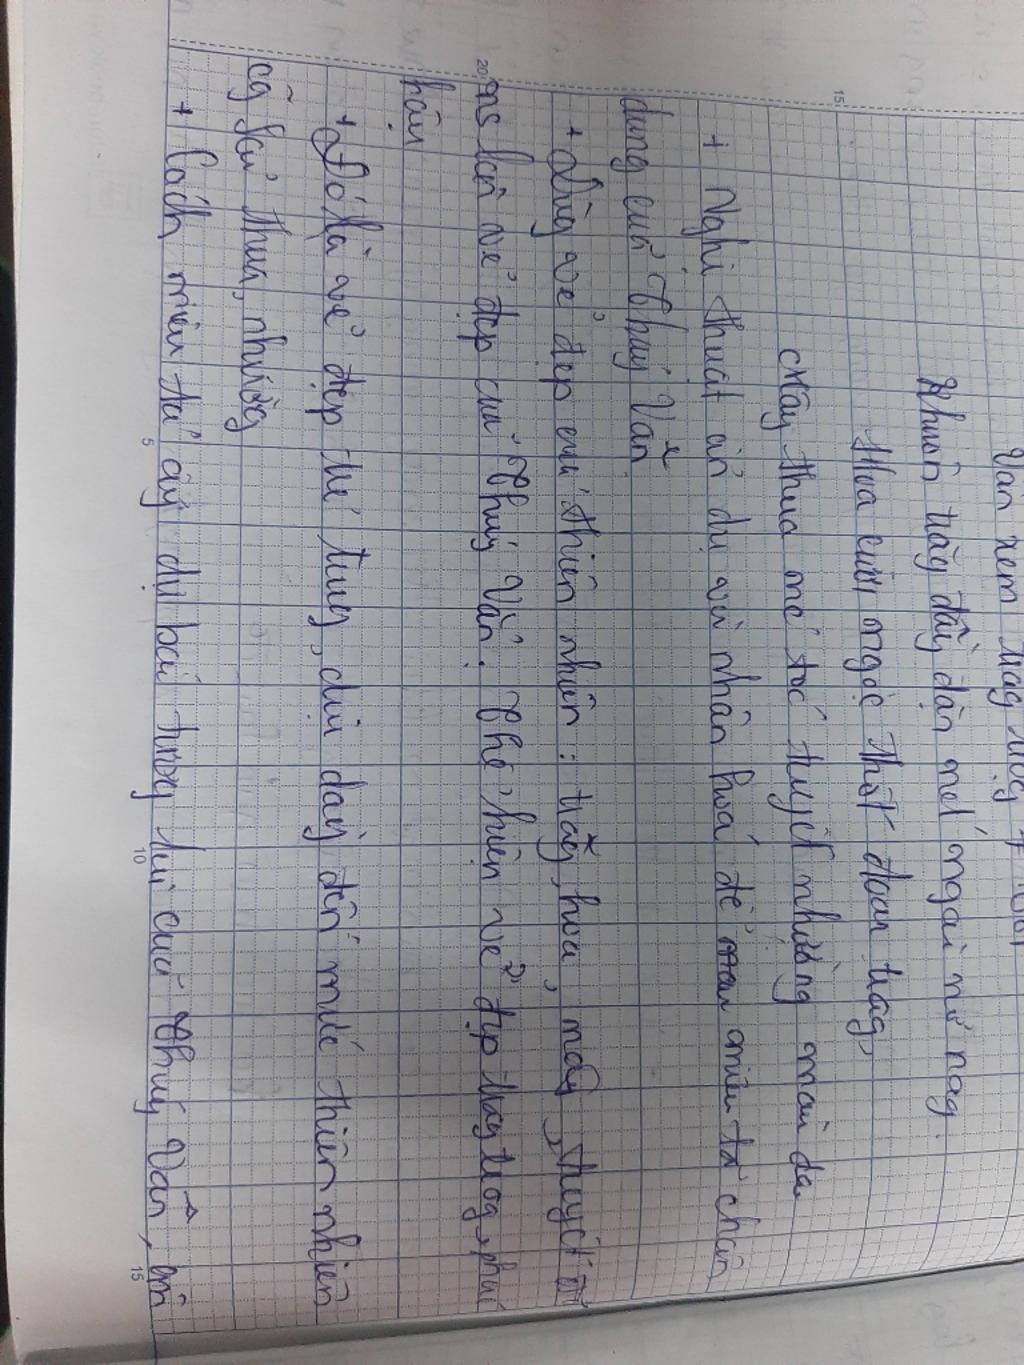 Vân xem trag trọg
Khuôn trăg đầy đặn nét ngài nở nag.
Hoa cười ngọc thốt đoan trag,
Mây thua nước tóc tuyết nhường màu da
+ Nghị thuật ẩn dụ và nhân hoá để miêu tả chân
dung của Thuý Vân
+ Dùg vẻ đẹp của thiên nhiên: trăg, hoa, mây, tuyết để
ns lên vẻ đẹp của Thuý Vân. Thể hiện vẻ đẹp trag trọg, phúc
hậu
+ Đó là vẻ đẹp trẻ trug, dịu dàg đến mức thiên nhiên
cg fải thua, nhườg
+ Cách miêu tả ấy dự báo tươg lai của Thuý Vân,